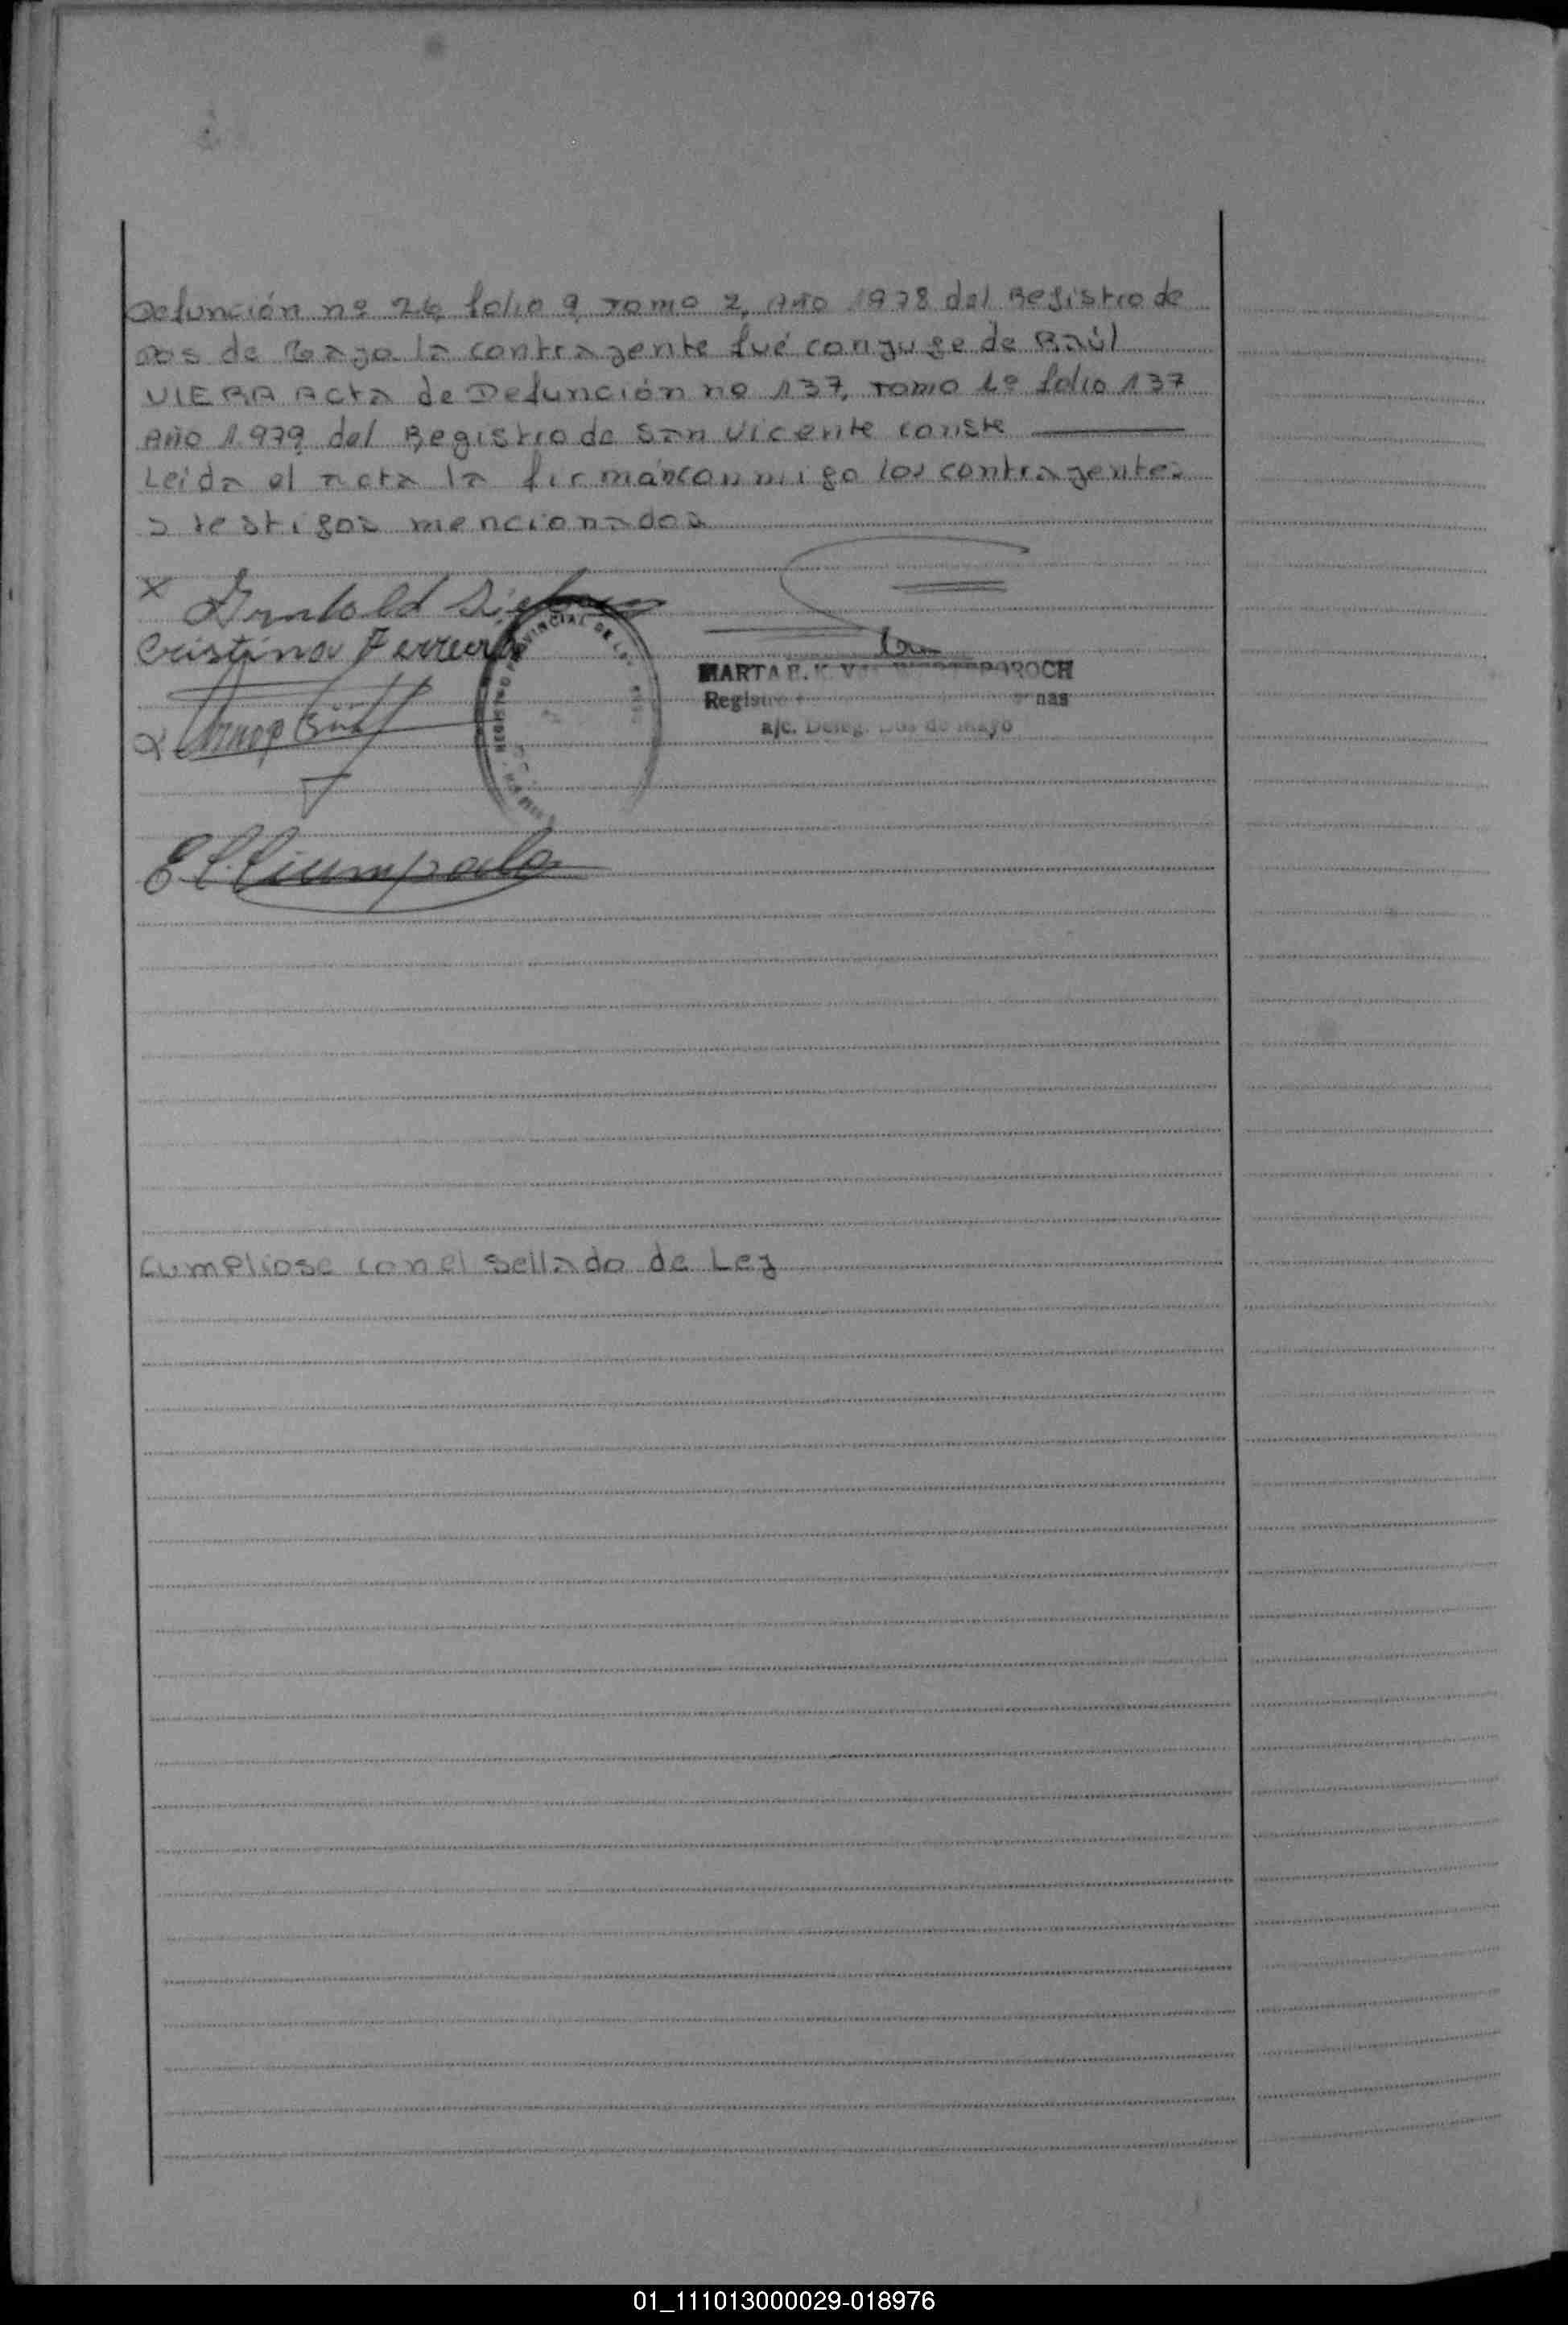 Defunción nº 26, folio 9, Tomo 2, Año 1978 del Registro de
Dos de Mayo la contrayente fué conyuge de Raúl
VIERA Acta de Defunción nº 137, Tomo 1º folio 137
Año 1.979 del Registro de San Vicente conste
Leida el acta la firman conmigo los contrayentes
y testigos mencionados
x
Cristina Ferreira
REGISTRO PROVINCIAL DE LAS
MARTA
Registro nas
a/c. Deleg. Dos de Mayo
Cumpliose con el sellado de Ley
01_111013000029-018976